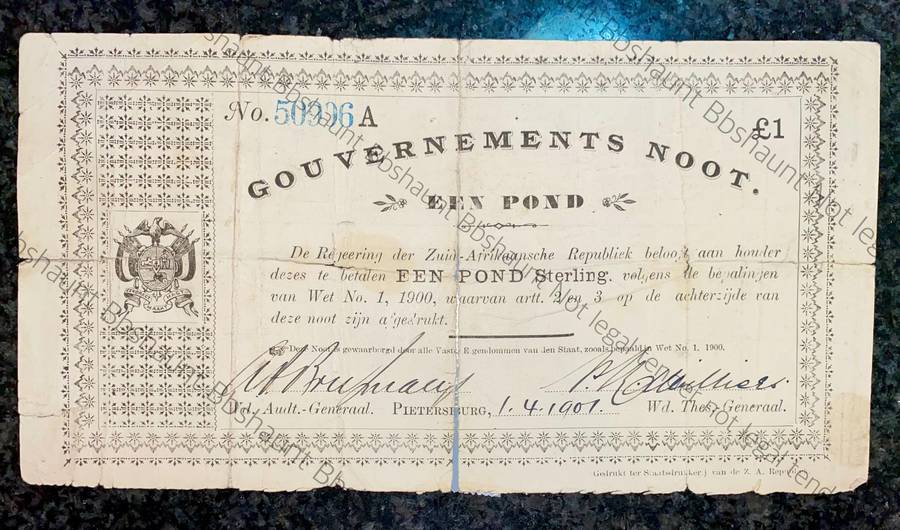 No. 50996 A
£1
GOUVERNEMENTS NOOT.
EEN POND
De Regeering der Zuid-Afrikaansche Republiek belooft aan houder
dezes te betalen EEN POND Sterling, volgens de bepalingen
van Wet No. 1, 1900, waarvan artt. 2 en 3 op de achterzijde van
deze noot zijn afgedrukt.
Deze Noot is gewaarborgd door alle Vaste Eigendommen van den Staat, zooals bepaald in Wet No. 1, 1900.
Wd. Audt.-Generaal. PIETERSBURG, 1.4.1901. Wd. Thes.-Generaal.
Gedrukt ter Staatsdrukkerij van de Z. A. Republiek
Bbshaunt Not legal tender